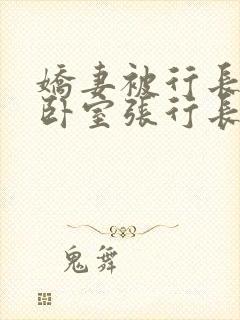 嬌妻被行長
卧室張行長
鬼舞